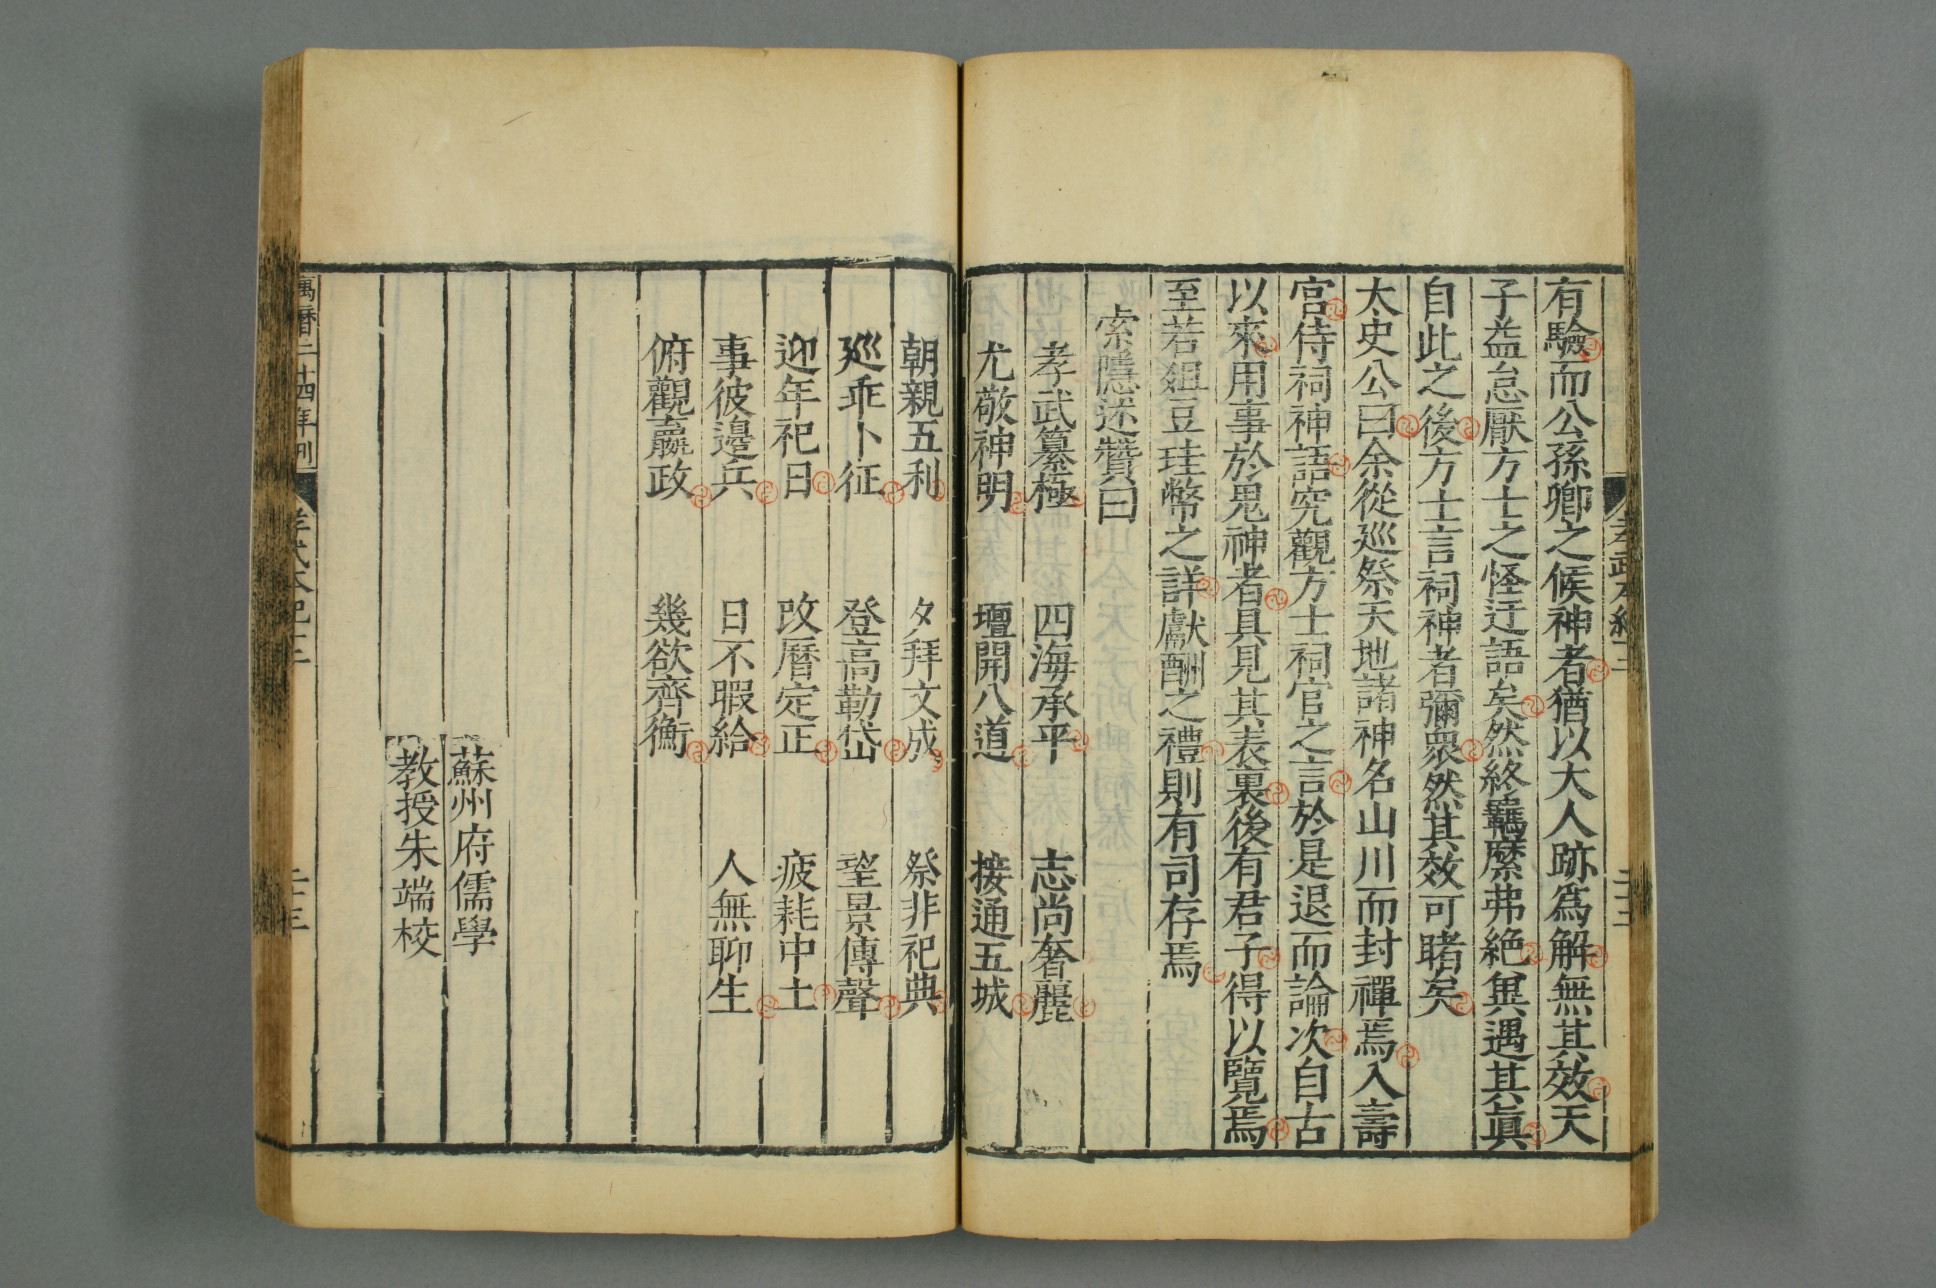 有驗而公孫卿之候神者猶以大人跡爲解無其效天
子益怠厭方士之怪迂語矣然終羈縻弗絶兾遇其眞
自此之後方士言祠神者彌衆然其效可睹矣
太史公曰余從廵祭天地諸神名山川而封禪焉入壽
宮侍祠神語究觀方士祠官之言於是退而論次自古
以來用事於鬼神者具見其表裏後有君子得以覽焉
至若俎豆珪幣之詳獻酬之禮則有司存焉
索隱述贊曰
孝武纂極 四海承平 志尚奢麗
尤敬神明 壇開八道 接通五城
朝親五利 夕拜文成 祭非祀典
廵乖卜征 登高勒岱 望景傳聲
迎年祀日 改曆定正 疲耗中土
事彼邊兵 日不暇給 人無聊生
俯觀嬴政 幾欲齊衡
蘇州府儒學
教授朱端校
萬曆二十四年刊
孝武本紀十二
二十三